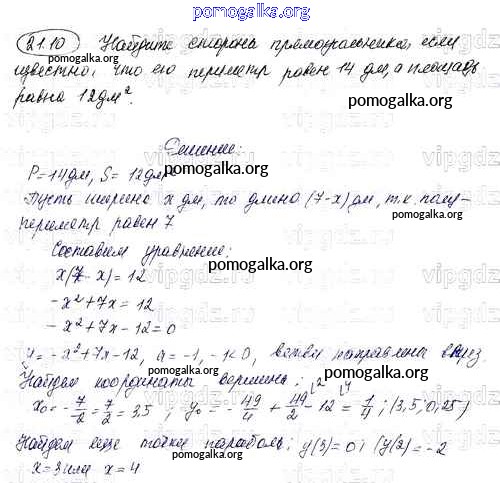 pomogalka.org
21.10 Найдите стороны прямоугольника, если
известно, что его периметр равен 14 дм, а площадь
pomogalka.org
равна 12 дм².
pomogalka.org
Решение:
pomogalka.org
P=14дм, S=12дм
Пусть ширина x дм, то длина (7-x) дм, т.к. полу-
периметр равен 7
pomogalka.org
Составим уравнение:
x(7-x)=12
pomogalka.org
-x²+7x=12
-x²+7x-12=0
pomogalka.org
y=-x²+7x-12, a=-1, -1<0, ветви направлены вниз.
Найдем координаты вершины:
x₀=-7/-2=7/2=3,5; y₀=-49/4+49/2-12=1/4; (3,5; 0,25)
Найдем еще точки параболы: y(3)=0; y(2)=-2
pomogalka.org
x=3 или x=4
pomogalka.org